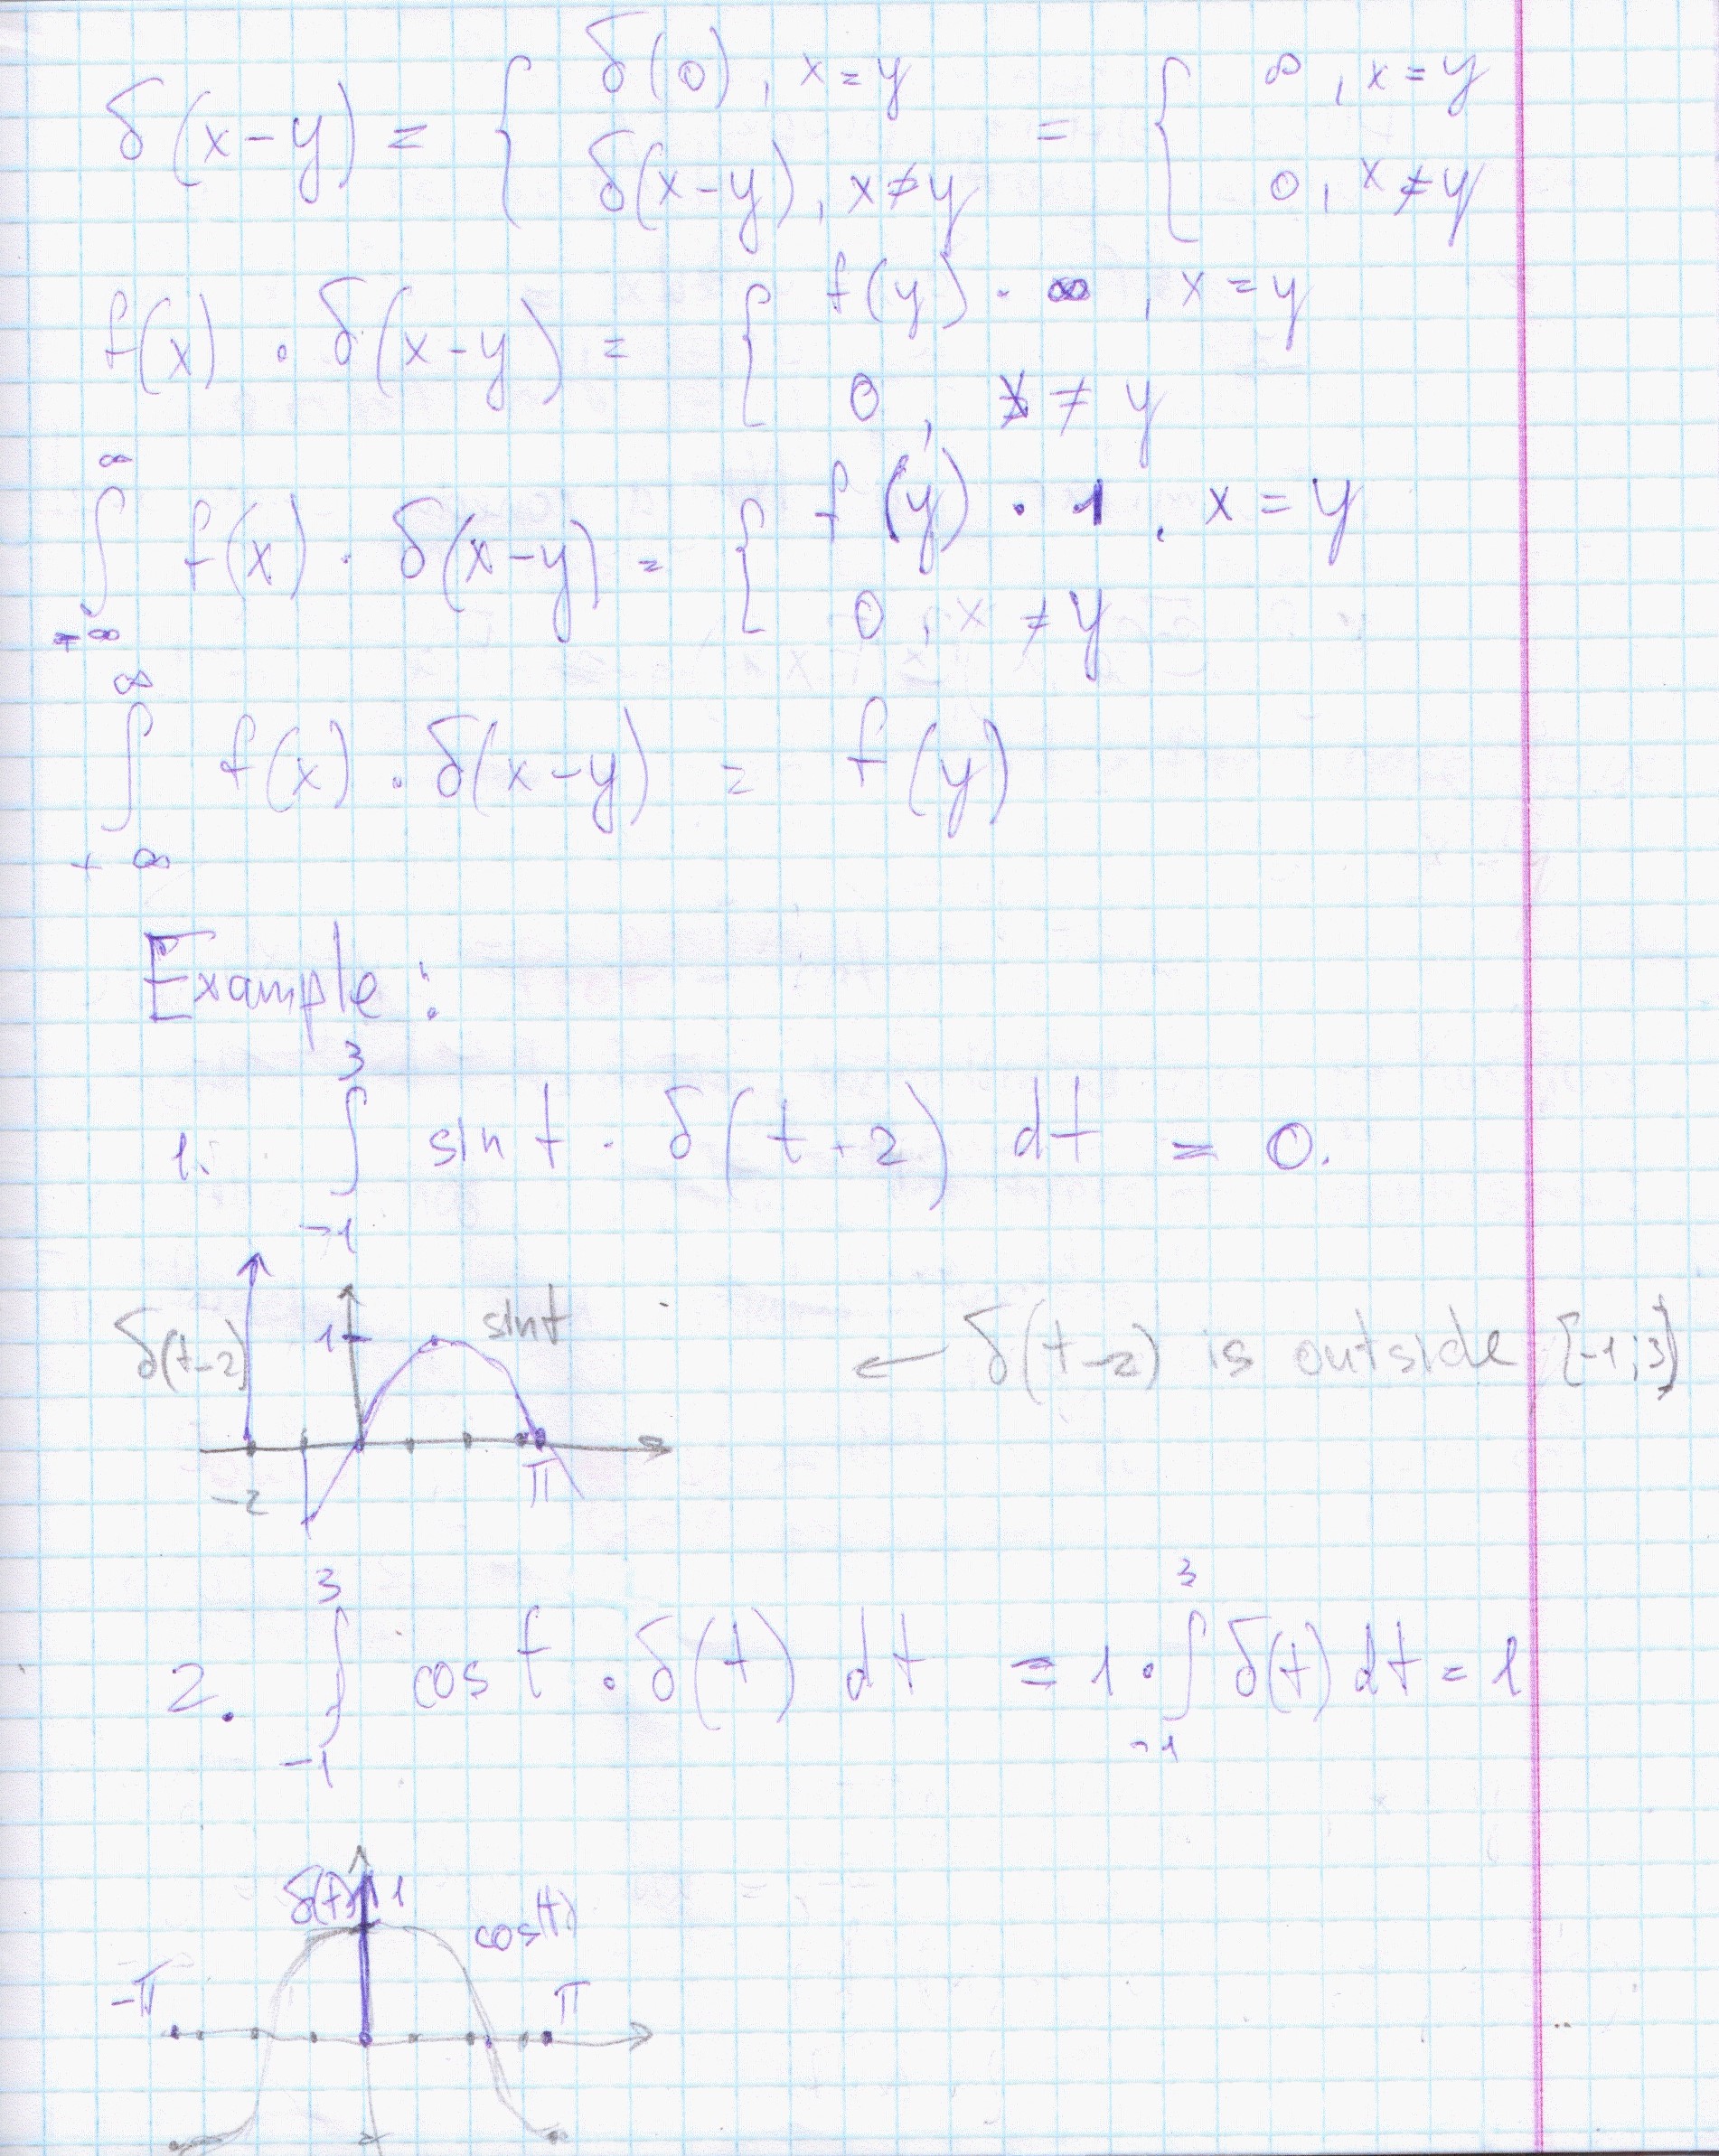 δ(x-y) = { δ(0), x=y = { ∞, x=y
δ(x-y), x≠y 0, x≠y
f(x) · δ(x-y) = { f(y) · ∞, x=y
0, x≠y
∞
∫ f(x) · δ(x-y) = { f(y) · 1, x=y
-∞ 0, x≠y
∞
∫ f(x) · δ(x-y) = f(y)
+∞
Example:
3
1. ∫ sin t · δ(t+2) dt = 0.
-1
δ(t-2) 1 sint ← δ(t-2) is outside [-1;3]
-2 π
3 3
2. ∫ cos t · δ(t) dt = 1 · ∫ δ(t) dt = 1
-1 -1
δ(t) 1 cos(t)
-π π